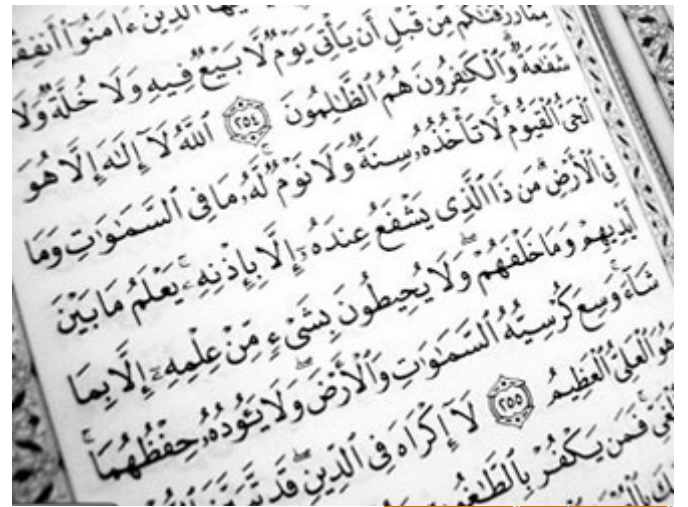 ءَامَنُوٓا۟ أَنفِقُوا۟
مِمَّا رَزَقْنَٰكُم مِّن قَبْلِ أَن يَأْتِىَ يَوْمٌ لَّا بَيْعٌ فِيهِ وَلَا خُلَّةٌ وَلَا
شَفَٰعَةٌ وَٱلْكَٰفِرُونَ هُمُ ٱلظَّٰلِمُونَ ٢٥٤ ٱللَّهُ لَآ إِلَٰهَ إِلَّا هُوَ
ٱلْحَىُّ ٱلْقَيُّومُ لَا تَأْخُذُهُۥ سِنَةٌ وَلَا نَوْمٌ لَّهُۥ مَا فِى ٱلسَّمَٰوَٰتِ وَمَا
فِى ٱلْأَرْضِ مَن ذَا ٱلَّذِى يَشْفَعُ عِندَهُۥٓ إِلَّا بِإِذْنِهِۦ يَعْلَمُ مَا بَيْنَ
أَيْدِيهِمْ وَمَا خَلْفَهُمْ وَلَا يُحِيطُونَ بِشَىْءٍ مِّنْ عِلْمِهِۦٓ إِلَّا بِمَا
شَآءَ وَسِعَ كُرْسِيُّهُ ٱلسَّمَٰوَٰتِ وَٱلْأَرْضَ وَلَا يَـُٔودُهُۥ حِفْظُهُمَا
وَهُوَ ٱلْعَلِىُّ ٱلْعَظِيمُ ٢٥٥ لَآ إِكْرَاهَ فِى ٱلدِّينِ قَد تَّبَيَّنَ
ٱلْغَىِّ فَمَن يَكْفُرْ بِٱلطَّٰغُوتِ